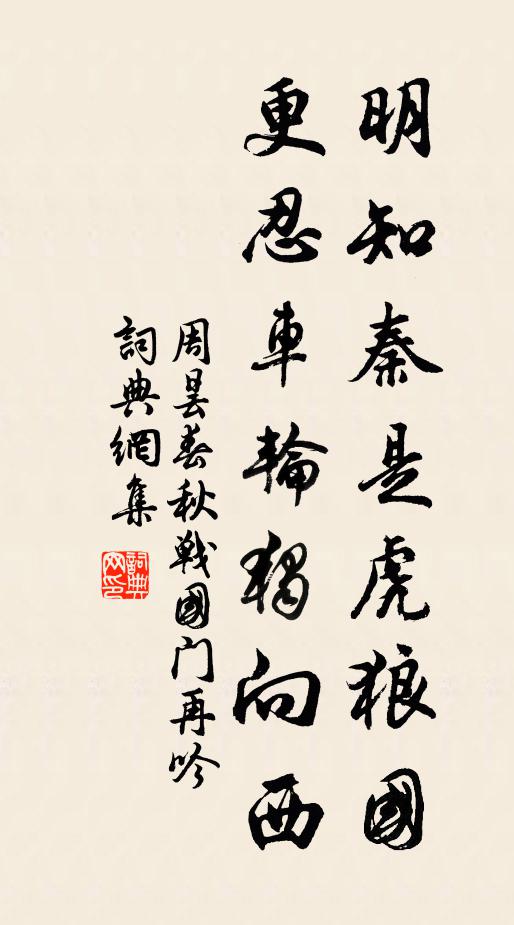 明知秦是虎狼國
更忍車輪獨向西
周昙春秋戰國门再吟
詞典網集
詞典
网印